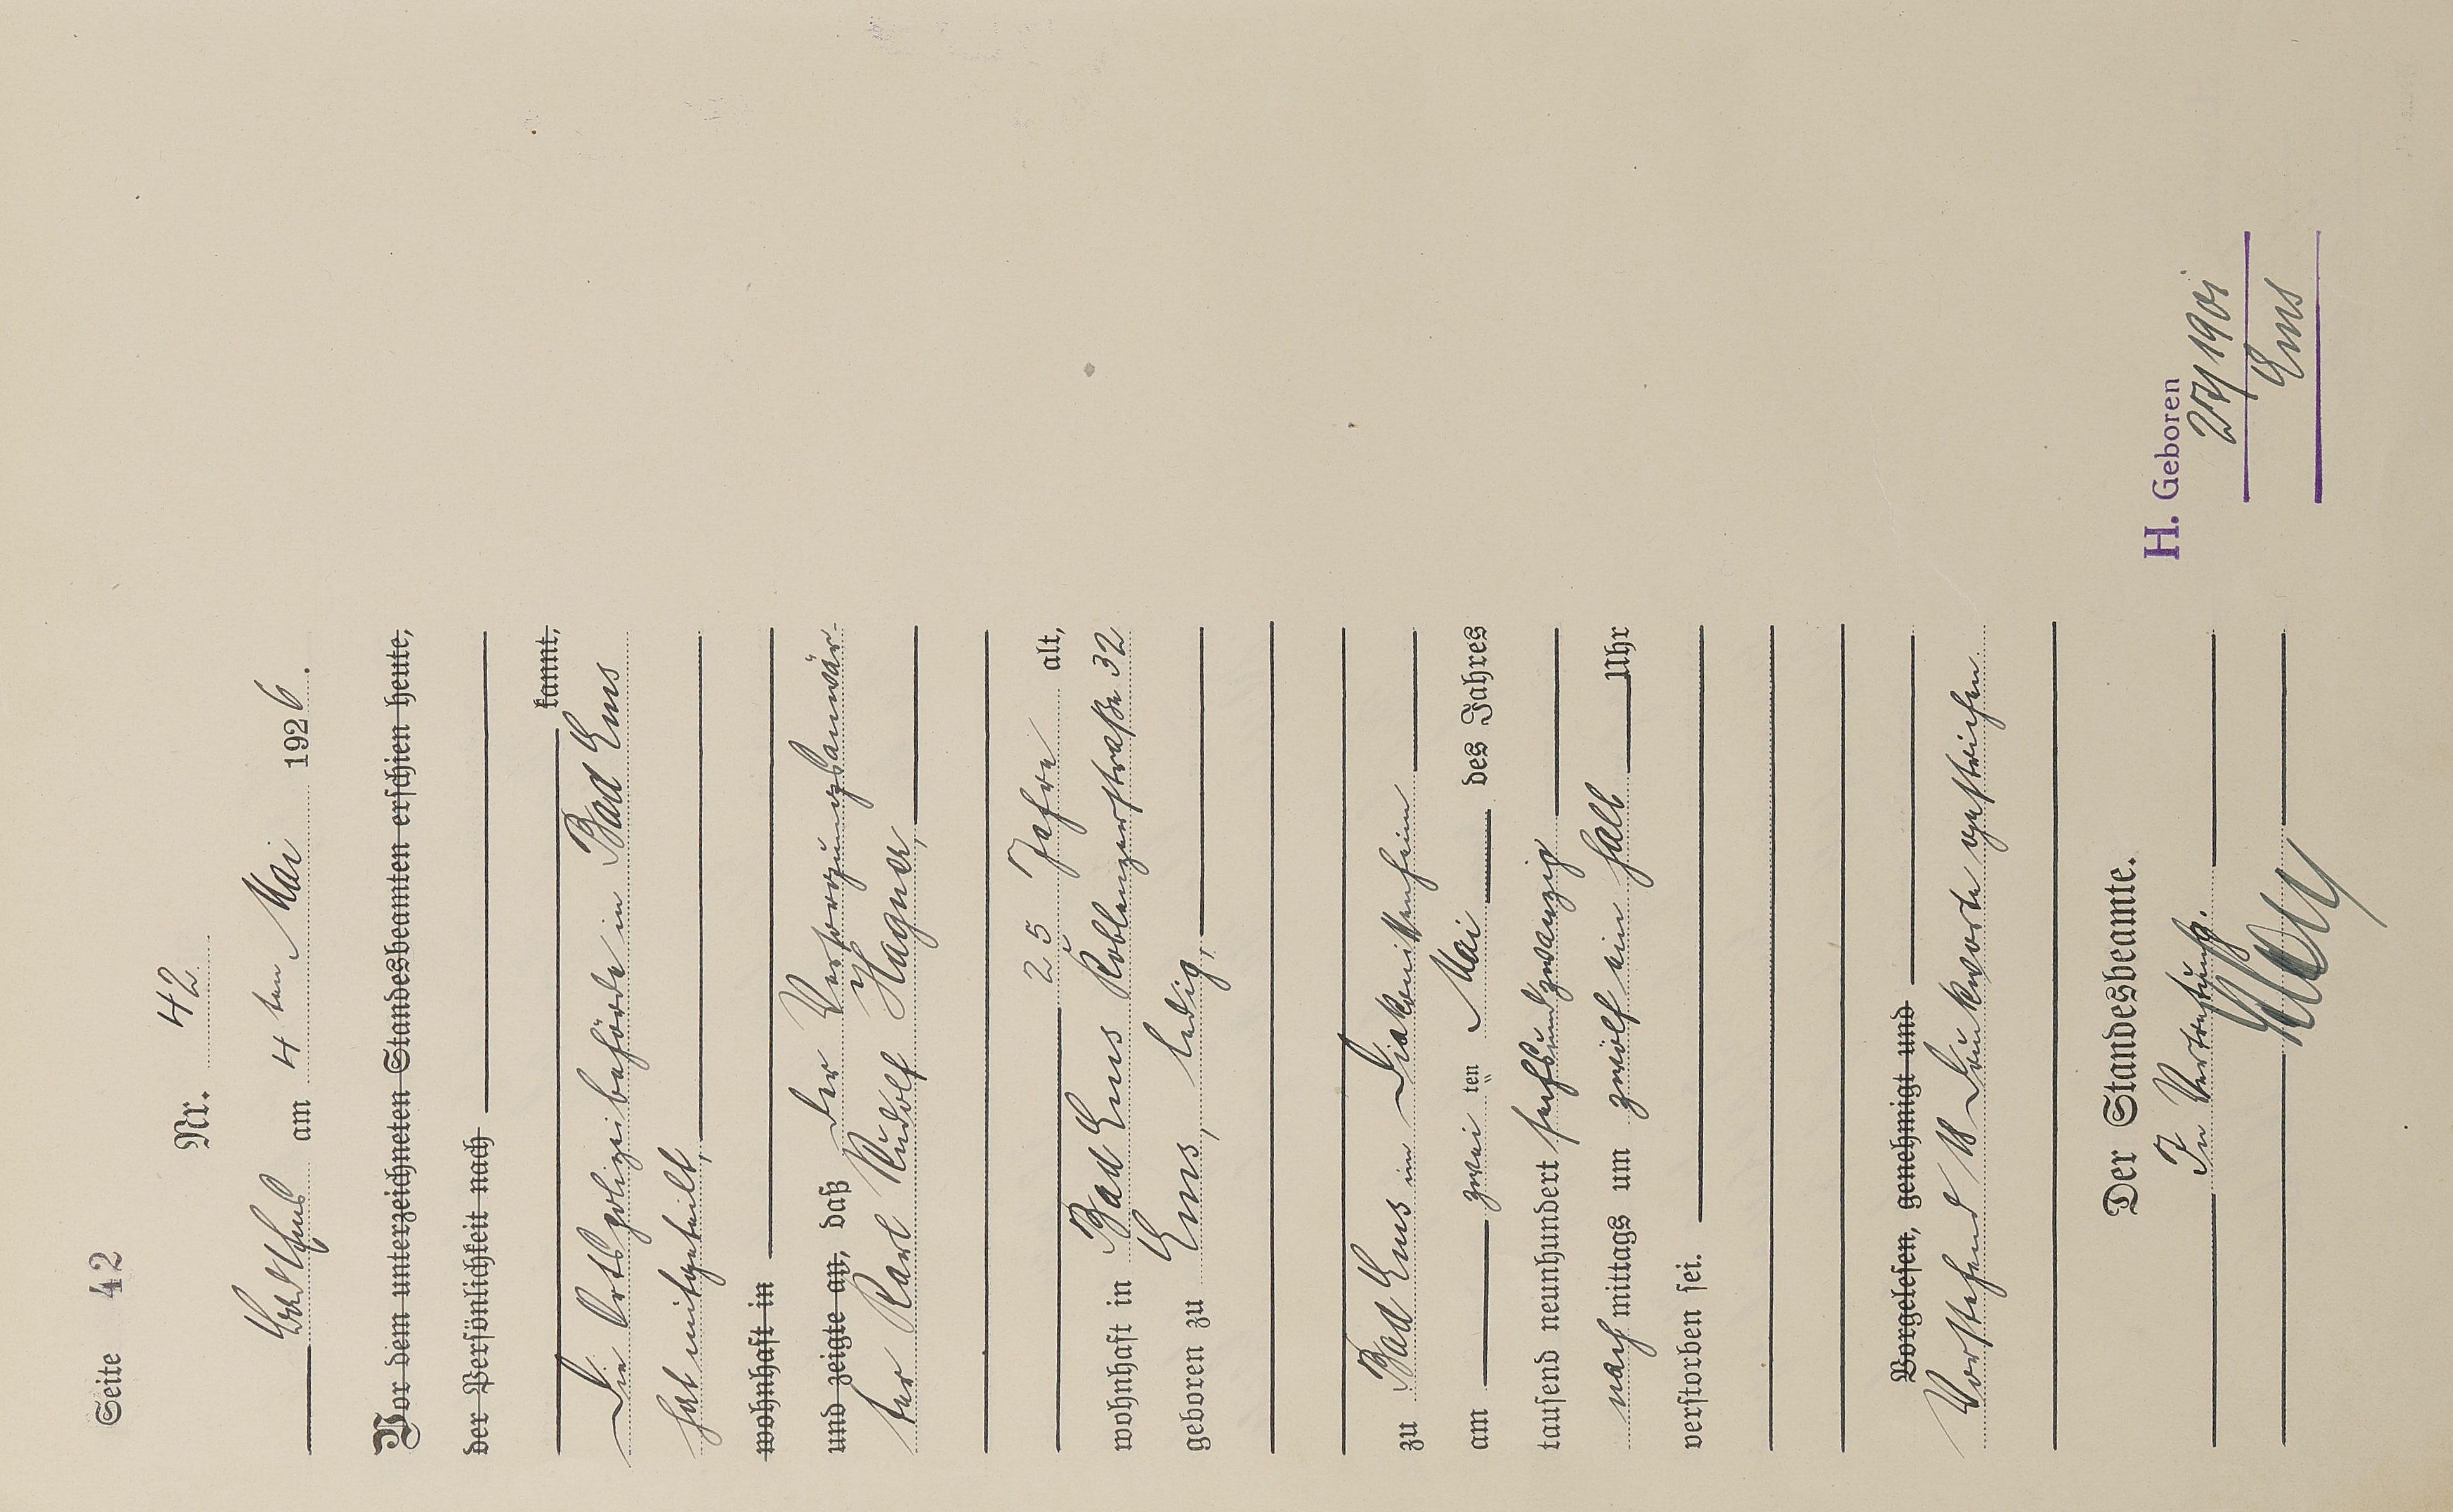 Seite 42
Nr. 42
Bad Ems am 4 ten Mai 1926.
Vor dem unterzeichneten Standesbeamten erschien heute,
der Persönlichkeit nach
kannt,
Die Ortspolizeibehörde in Bad Ems
hat mitgeteilt,
wohnhaft in
und zeigte an, daß der Versorgungsanwär-
ter Karl Rudolf Hagner,
25 Jahre alt,
wohnhaft in Bad Ems Koblenzerstraße 32
geboren zu Ems, ledig,
zu Bad Ems im Diakonissenheim
am zwei ten Mai des Jahres
tausend neunhundert sechsundzwanzig
nach mittags um zwölf ein halb Uhr
verstorben sei.
Vorgelesen, genehmigt und
Vorstehend 18 Druckworte gestrichen.
Der Standesbeamte.
In Vertretung.
H. Geboren
1901
Ems